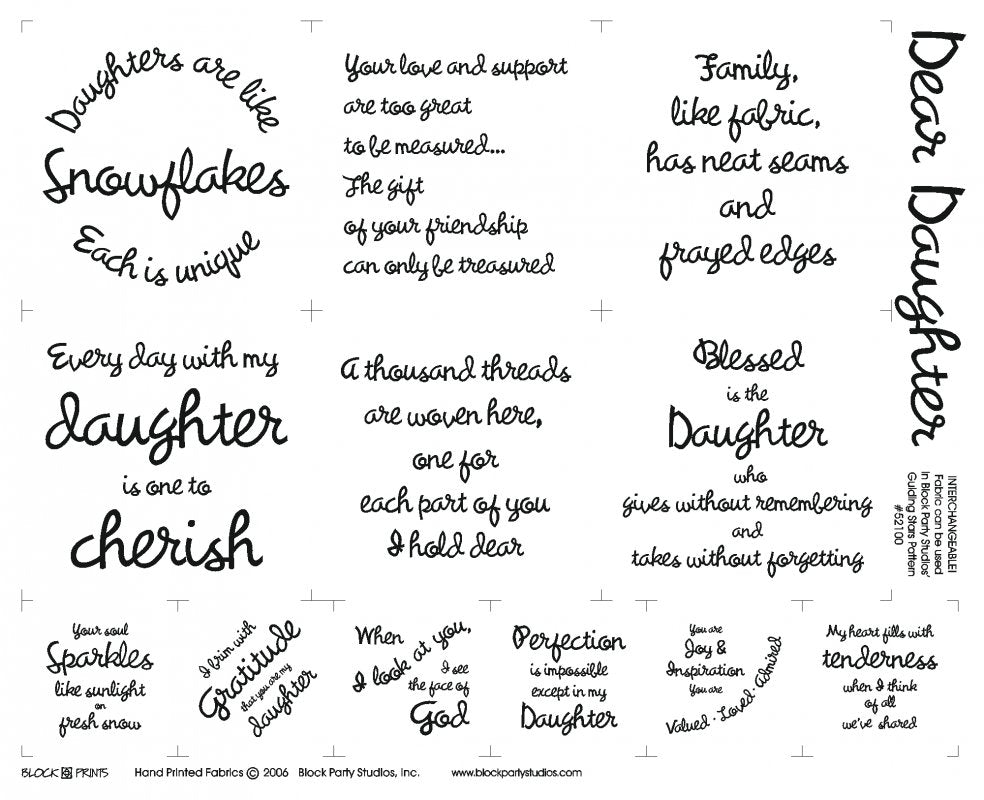 Daughters are like
Snowflakes
Each is unique
Your love and support
are too great
to be measured...
The gift
of your friendship
can only be treasured
Family,
like fabric,
has neat seams
and
frayed edges
Dear Daughter
Every day with my
daughter
is one to
cherish
A thousand threads
are woven here,
one for
each part of you
I hold dear
Blessed
is the
Daughter
who
gives without remembering
and
takes without forgetting
INTERCHANGEABLE!
Fabric can be used
in Block Party Studios'
Guiding Stars Pattern
#52100
Your soul
Sparkles
like sunlight
on
fresh snow
I brim with
Gratitude
that you are my
daughter
When
I look at you,
I see
the face of
God
Perfection
is impossible
except in my
Daughter
You are
Joy &
Inspiration
You are
Valued · Loved · Admired
My heart fills with
tenderness
when I think
of all
we've shared
BLOCK PRINTS
Hand Printed Fabrics © 2006 Block Party Studios, Inc. www.blockpartystudios.com